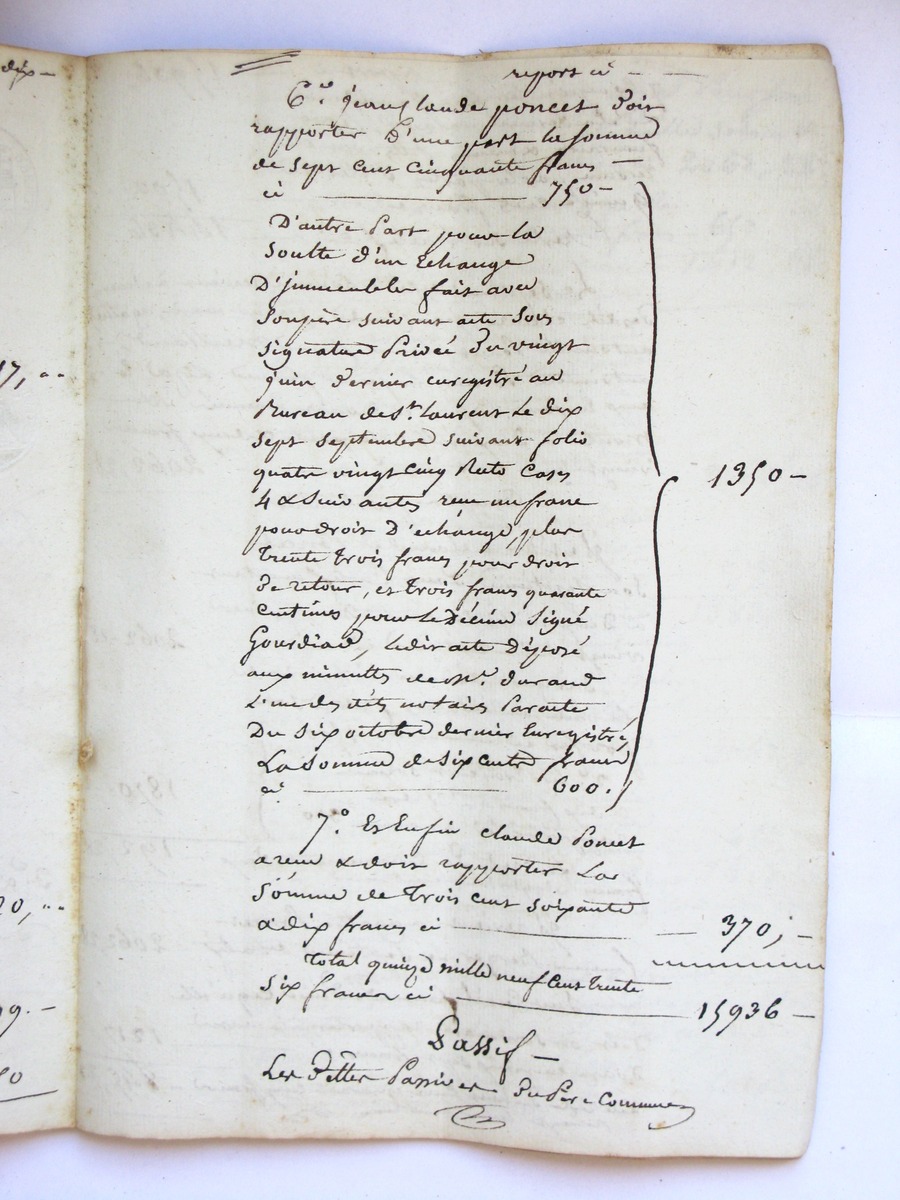 dix —
report ci — —
6.º jean claude poncet doit
rapporter D'une part la somme
de sept cent cinquante francs —
ci — 750 —
D'autre Part pour la
soulte d'un Echange
D'immeubles fait avec
son père suivant acte sous
signature Privée du vingt
juin dernier enregistré au
Bureau de St. laurent Le dix
sept septembre suivant folio
quatre vingt cinq Recto Cases
4 & suivantes reçu un franc
pour droit D'échange, plus
trente trois francs pour droit
de retour, et trois francs quarante
centimes pour le Décime signé
Gourdiad, ledit acte Déposé
aux minutes de Me. durand
L'un des dits notaires Par acte
Du six octobre dernier Enregistré,
La somme de six cents francs
ci — 600.
1350 —
7.º Et Enfin claude Poncet
a reçu & doit rapporter La
somme de trois cent soixante
& dix francs ci — 370, —
total quinze mille neuf cent trente
six francs ci — 15936 —
Passif —
Les dettes Passives du Père Commun
17, ..
20, ..
9. —
50